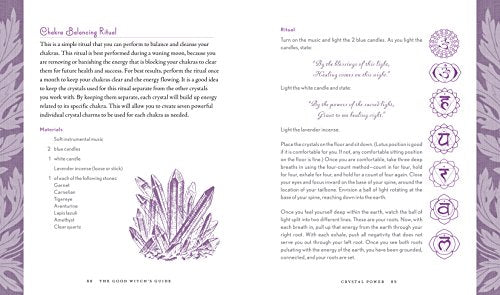 Chakra Balancing Ritual
This is a simple ritual that you can perform to balance and cleanse your
chakras. This ritual is best performed during a waning moon, because you
are removing or banishing the energy that is blocking your chakras to clear
them for future health and success. For best results, perform the ritual once
a month to keep your chakras clear and the energy flowing. It is a good idea
to keep the crystals used for this ritual separate from the other crystals
you work with. By keeping them separate, each crystal will build up energy
related to its specific chakra. This will allow you to create seven powerful
individual crystal charms to be used for each chakra as needed.
Materials
Soft instrumental music
2 blue candles
1 white candle
Lavender incense (loose or stick)
1 of each of the following stones:
Garnet
Carnelian
Tigereye
Aventurine
Lapis lazuli
Amethyst
Clear quartz
88 THE GOOD WITCH'S GUIDE
Ritual
Turn on the music and light the 2 blue candles. As you light the
candles, state:
"By the blessings of this light,
Healing covers on this night."
Light the white candle and state:
"By the powers of the sacred light,
Grant to me healing right."
Light the lavender incense.
Place the crystals on the floor and sit down. (Lotus position is good
if it is comfortable for you. If not, any comfortable sitting position
on the floor is fine.) Once you are comfortable, take three deep
breaths in using the four-count method—count in for four, hold
for four, exhale for four, and hold for a count of four again. Close
your eyes and focus inward on the base of your spine, around the
location of your tailbone. Envision a ball of light rotating at the
base of your spine, reaching down into the earth.
Once you feel yourself deep within the earth, watch the ball of
light split into two different lines. These are your roots. Now, with
each breath in, pull up that energy from the earth through your
right root. With each exhale, push all negativity that does not
serve you out through your left root. Once you see both roots
pulsating with the energy of the earth, you have been grounded,
connected, and your roots are set.
CRYSTAL POWER 89